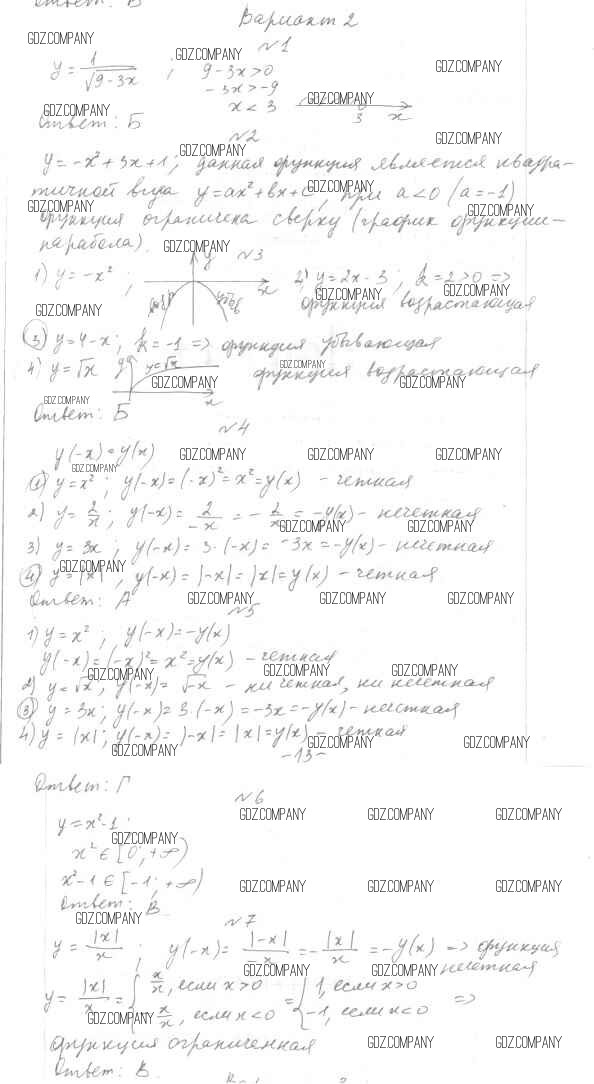 Ответ: В
Вариант 2
№1
y = 1/√(9-3x) ; 9-3x>0
-3x>-9
x < 3
3 x
Ответ: Б
№2
y = -x² + 3x + 1; данная функция является квадра-
тичной вида y = ax² + bx + c, при a<0 (a=-1)
функция ограничена сверху (график функции-
парабола).
№3
1) y = -x² ; y x 2) y = 2x - 3 ; k = 2 > 0 =>
функция возрастающая
3) y = 4-x; k = -1 => функция убывающая
4) y = √x y y=√x x функция возрастающая
Ответ: Б
№4
y(-x) = y(x)
1) y = x² ; y(-x) = (-x)² = x² = y(x) - четная
2) y = 2/x ; y(-x) = 2/-x = - 2/x = -y(x) - нечетная
3) y = 3x ; y(-x) = 3·(-x) = -3x = -y(x) - нечетная
4) y = |x| , y(-x) = |-x| = |x| = y(x) - четная
Ответ: А
№5
1) y = x² ; y(-x) = -y(x)
y(-x) = (-x)² = x² = y(x) - четная
2) y = √x, y(-x) = √-x - ни четная, ни нечетная
3) y = 3x; y(-x) = 3·(-x) = -3x = -y(x) - нечетная
4) y = |x|; y(-x) = |-x| = |x| = y(x) - четная
-13-
Ответ: Г
№6
y = x² - 1
x² ∈ [0; +∞)
x²-1 ∈ [-1; +∞)
Ответ: В
№7
y = |x|/x ; y(-x) = |-x|/-x = - |x|/x = -y(x) => функция
нечетная
y = |x|/x = { x/x, если x>0 = { 1, если x>0 =>
x/x, если x<0 -1, если x<0
функция ограниченная
Ответ: В.
GDZ.COMPANY